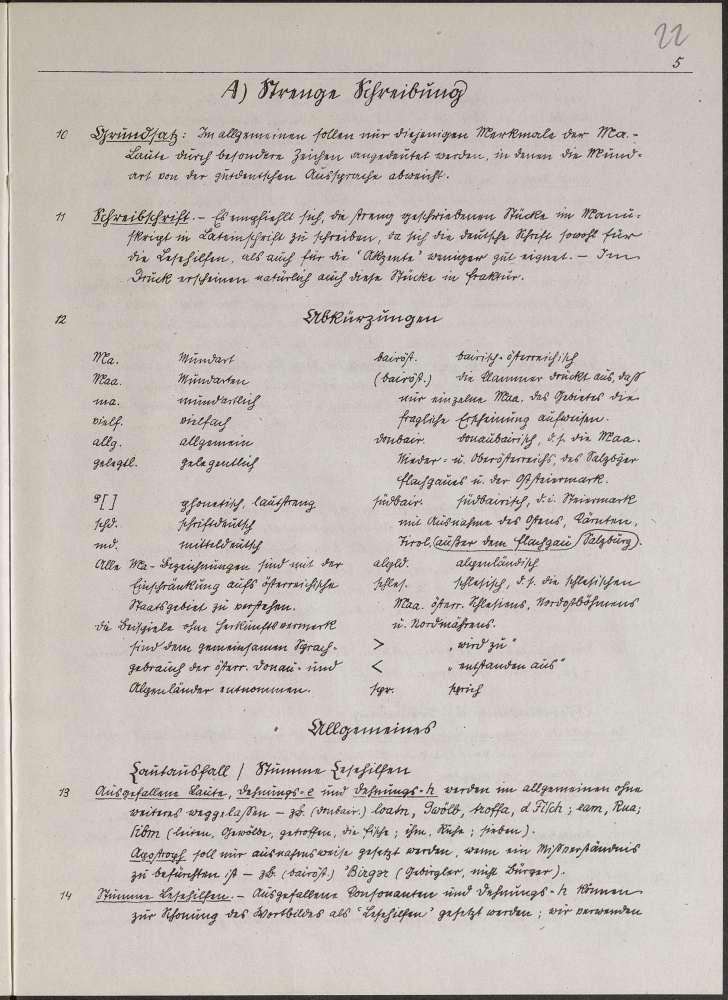 22
5
A) Strenge Schreibung
10 Grundsatz: Im allgemeinen sollen nur diejenigen Merkmale der Ma.-
Laute durch besondere Zeichen angedeutet werden, in denen die Mund-
art von der gutdeutschen Aussprache abweicht.
11 Schreibschrift. - Es empfiehlt sich, die streng geschriebenen Stücke im Manu-
skript in Lateinschrift zu schreiben, da sich die deutsche Schrift sowohl für
die Lesehilfen, als auch für die 'Akzente' weniger gut eignet. - Im
Druck erscheinen natürlich auch diese Stücke in Fraktur.
12 Abkürzungen
Ma. Mundart
Maa. Mundarten
ma. mundartlich
vielf. vielfach
allg. allgemein
gelegtl. gelegentlich
[ ] phonetisch, lautstreng
schd. schriftdeutsch
md. mitteldeutsch
Alle Ma-Bezeichnungen sind mit der
Einschränkung aufs österreichische
Staatsgebiet zu verstehen.
Die Beispiele ohne Herkunftsvermerk
sind dem gemeinsamen Sprach-
gebrauch der österr. Donau- und
Alpenländer entnommen.
bairöst. bairisch-österreichisch
(bairöst.) die Klammer drückt aus, daß
nur einzelne Maa. des Gebietes die
fragliche Erscheinung aufweisen.
donbair. donaubairisch, d.h. die Maa.
Nieder- u. Oberösterreichs, des Salzbger
Flachgaues u. der Oststeiermark.
südbair. südbairisch, d.i. Steiermark
mit Ausnahme des Ostens, Kärnten,
Tirol, (außer dem Flachgau) Salzburg).
alpld. alpenländisch
schles. schlesisch, d.h. die schlesischen
Maa. österr. Schlesiens, Nordostböhmens
u. Nordmährens.
> "wird zu"
< "entstanden aus"
spr. sprich
Allgemeines
Lautausfall / Stumme Lesehilfen
13 Ausgefallene Laute, Dehnungs-e und Dehnungs-h werden im allgemeinen ohne
weiteres weggelassen - zb. (donbair.) loatn, Gwölb, troffa, d Fisch; eam, Kua;
sibm (leiten, Gewölbe, getroffen, die Fische; ihm, Kuh; sieben).
Apostroph soll nur ausnahmsweise gesetzt werden, wenn ein Mißverständnis
zu befürchten ist - zb. (bairöst.) 'Birger (Gebirgler, nicht Bürger).
14 Stumme Lesehilfen. - Ausgefallene Konsonanten und Dehnungs-h können
zur Schonung des Wortbildes als 'Lesehilfen' gesetzt werden; wir verwenden